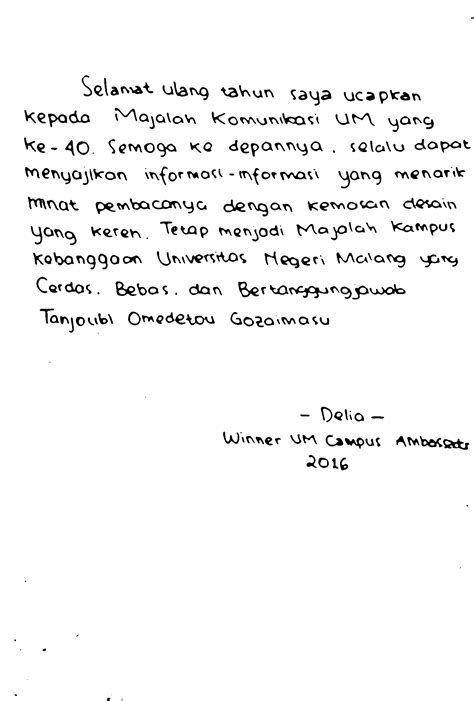 Selamat ulang tahun saya ucapkan
kepada Majalah Komunikasi UM yang
ke-40. Semoga ke depannya, selalu dapat
menyajikan informasi-informasi yang menarik
minat pembacanya dengan kemasan desain
yang keren. Tetap menjadi Majalah Kampus
kebanggaan Universitas Negeri Malang yang
Cerdas, Bebas, dan Bertanggungjawab
Tanjoubi Omedetou Gozaimasu
- Delia -
Winner UM Campus
2016